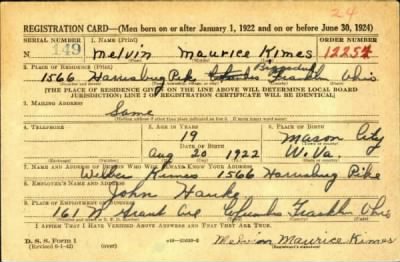 24
REGISTRATION CARD—(Men born on or after January 1, 1922 and on or before June 30, 1924)
SERIAL NUMBER 1. NAME (Print) ORDER NUMBER
N 149 Melvin Maurice Kimes 12254
2. PLACE OF RESIDENCE (Print)
1566 Harrisburg Pike Columbus Franklin Ohio
(THE PLACE OF RESIDENCE GIVEN ON THE LINE ABOVE WILL DETERMINE LOCAL BOARD
JURISDICTION; LINE 2 OF REGISTRATION CERTIFICATE WILL BE IDENTICAL)
3. MAILING ADDRESS
Same
4. TELEPHONE 5. AGE IN YEARS 6. PLACE OF BIRTH
19 Mason City
DATE OF BIRTH
Aug 20 1922 W. Va.
7. NAME AND ADDRESS OF PERSON WHO WILL ALWAYS KNOW YOUR ADDRESS
Kimes 1566 Harrisburg Pike
8. EMPLOYER'S NAME AND ADDRESS
John
9. PLACE OF EMPLOYMENT OR BUSINESS
161 W Grant Ave Columbus Franklin Ohio
I AFFIRM THAT I HAVE VERIFIED ABOVE ANSWERS AND THAT THEY ARE TRUE.
D. S. S. Form 1
(Revised 6-1-42) (over)
Melvin Maurice Kimes